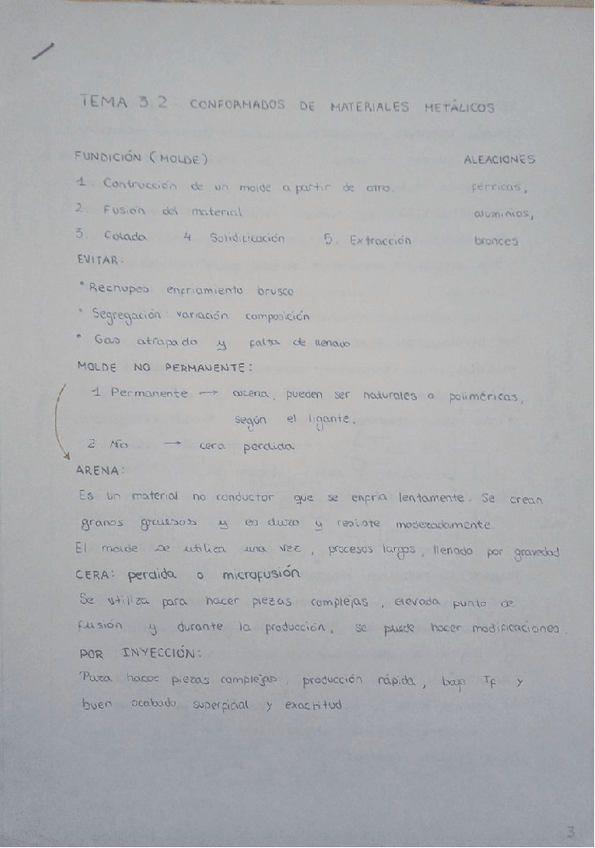 TEMA 3.2 CONFORMADOS DE MATERIALES METÁLICOS
FUNDICIÓN (MOLDE)
ALEACIONES
1. Contrucción de un molde a partir de otro.
férricas,
2. Fusión del material
aluminios,
3. Colada 4. Solidificación 5. Extracción
bronces
EVITAR:
* Rechupes enfriamiento brusco
* Segregación: variación composición
* Gas atrapado y falta de llenado
MOLDE NO PERMANENTE:
1 Permanente → , pueden ser naturales o poliméricas,
según el ligante.
2 No → cera perdida
ARENA:
Es un material no conductor que se enfría lentamente. Se crean
granos gruesos y es duro y resiste moderadamente.
El molde se utiliza una vez, procesos largos, llenado por gravedad
CERA: perdida o microfusión
Se utiliza para hacer piezas complejas, elevado punto de
fusión y durante la producción, se puede hacer modificaciones.
POR INYECCIÓN:
Para hacer piezas complejas, producción rápida, baja Tf y
buen acabado superficial y exactitud
3